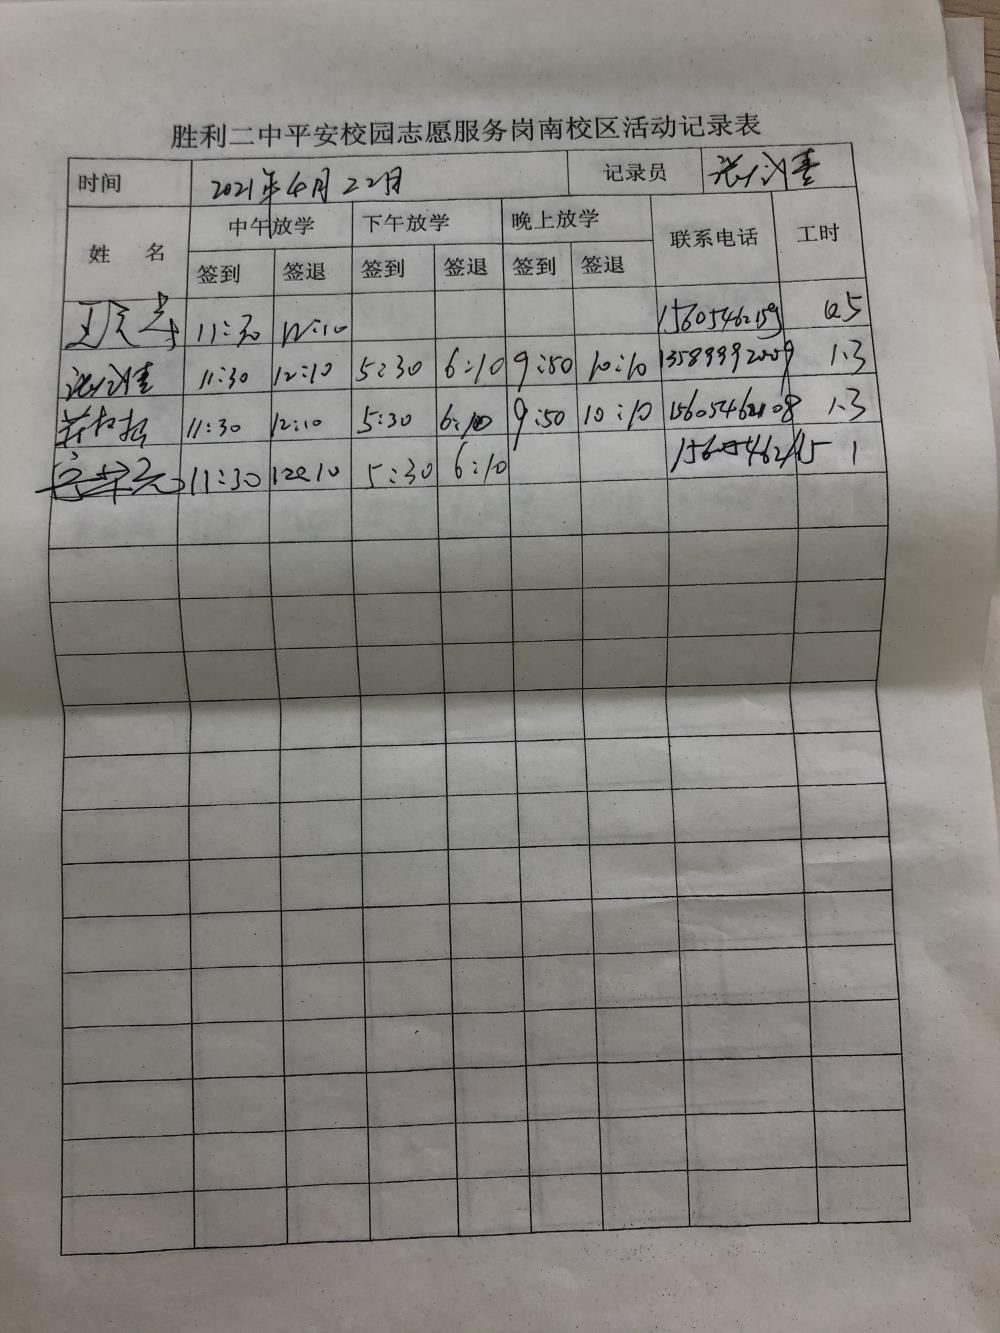 胜利二中平安校园志愿服务岗南校区活动记录表
时间 2021年4月22日 记录员
姓 名 中午放学 下午放学 晚上放学 联系电话 工时
签到 签退 签到 签退 签到 签退
11:30 12:10 0.5
11:30 12:10 5:30 6:10 9:50 10:10 13589992009 1.3
11:30 12:10 5:30 6:10 9:50 10:10 15605462108 1.3
11:30 12:10 5:30 6:10 1